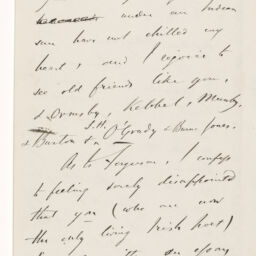 under an Indian
sun have not chilled my
heart, and I rejoice to
see old friends like you,
& Ormsby, Kelobel, Munby,
S.H. O'Grady & Burne Jones.
& Burton &
As to Ferguson, I confess
to feeling sorely disappointed
that you (who are now
the only living Irish poet)